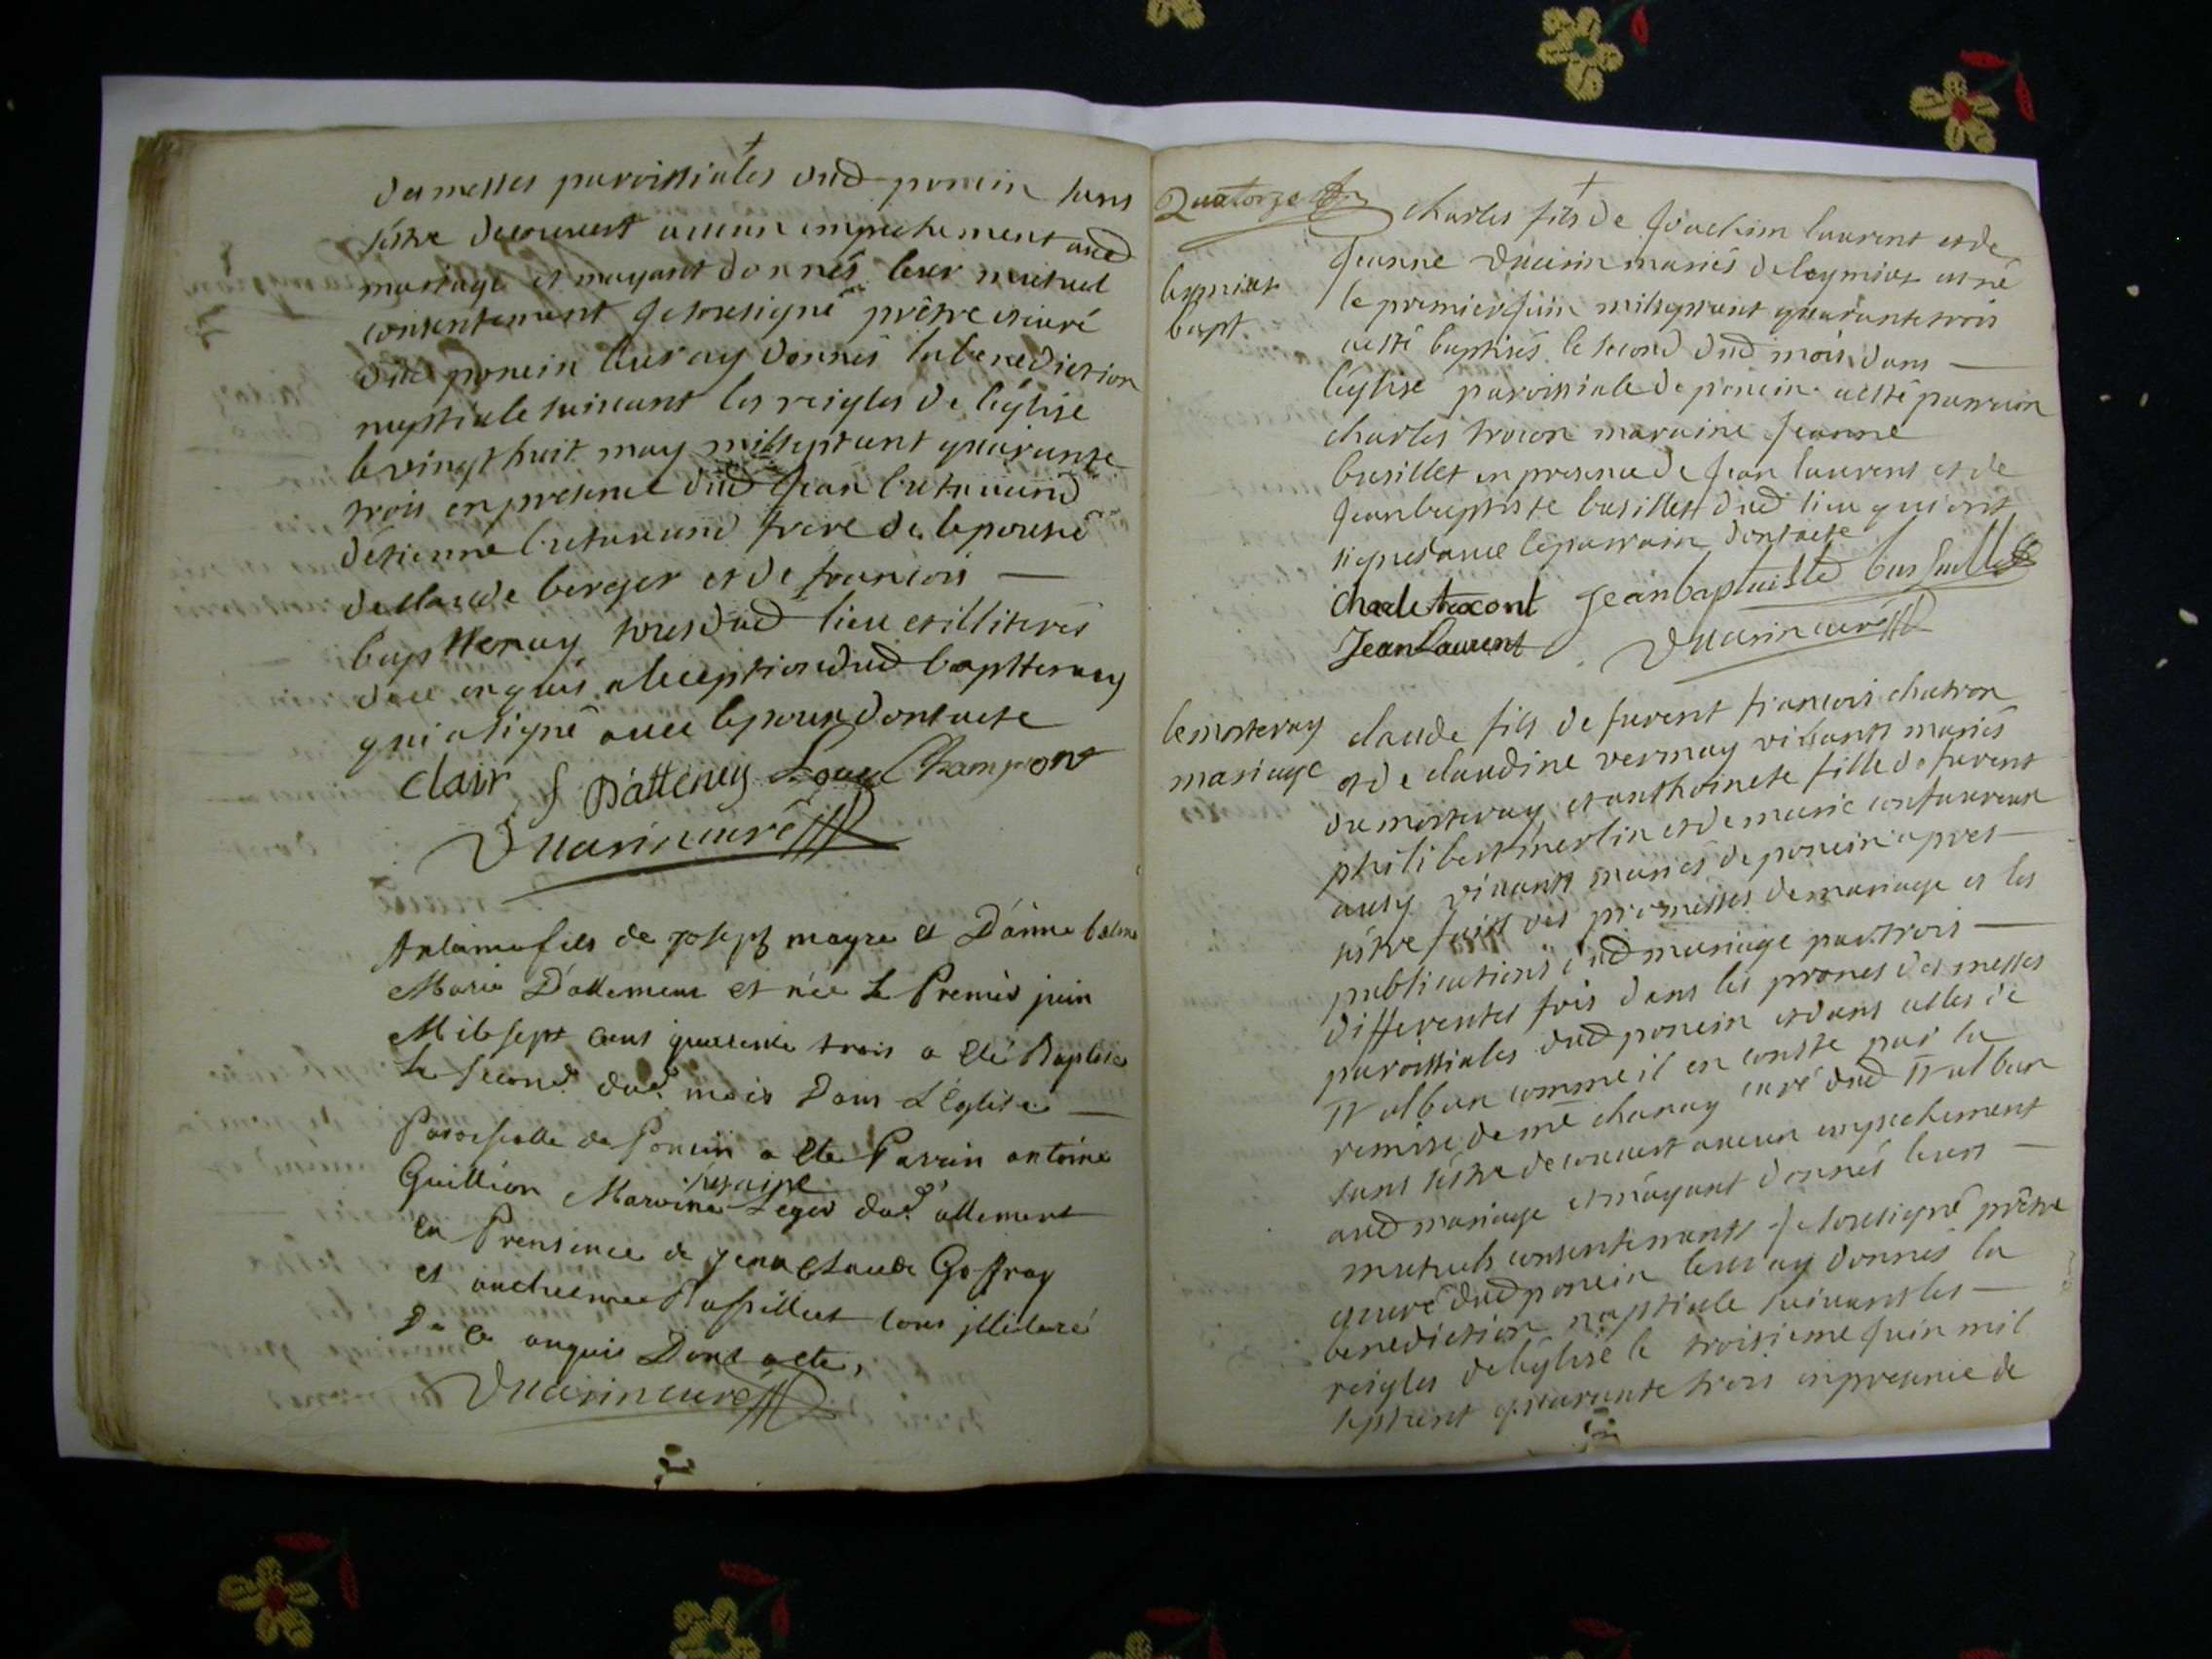 des messes paroissiales dud poncin sans
s'être decouvert aucun empechement aud
mariage et m'ayant donnés leur mutuel
consentement je soussigné prêtre et curé
dud poncin leur ay donnés la benediction
nuptiale suivant les reigles de l'église
le vingt huit may mil sept cent quarante
trois en presence dud Jean
d'étienne frere de l'epouse
de claude berger et de francois
tous dud lieu et illiterés
de ce enquis a l'exception dud
qui a signé avec l'epoux dont acte
Clair
curé
fils de joseph mayre et D'anne
Marie D'allement et née Le Premier juin
Mil sept cens quarente trois a été Baptisé
Le Second dud mois Dans L'Eglise
Paroissialle de Poncin a ete Parrin antoine
Guillion Marvine Leger dud allement
En Prensence de jean Claude Goffray
et tous jlliteré
De ce anquis Dont acte,
curé
Quatorze
Charles fils de Joachim laurent et de
Jeanne mariés de leymiat est né
leymiat
bapt
le premier juin mil sept cent quarante trois
a esté baptisés le second dud mois dans
l'église paroissiale de poncin a esté parrain
charles trocon maraine Jeanne
busillet en presence de Jean laurent et de
Jean baptiste busillet dud lieu qui ont
signés avec le parrain dont acte
Charle trocont Jean baptuiste
Jean Laurent
curé
le mortaray
mariage
claude fils de furent francois chatron
et de claudine vermay vivants mariés
du mortaray et anthoinete fille de furent
philibert merlin et de marie
aussy vivants mariés de poncin apres
s'être faits des promesses de mariage et les
publications dud mariage par trois
differentes fois dans les prones des messes
paroissiales dud poncin et dans celles de
St alban comme il en conste par la
remise de me charay curé dud St alban
sans s'être decouvert aucun empechement
aud mariage et m'ayant donnés leurs
mutuels consentements je soussigné prêtre
curé dud poncin leur ay donnés la
benediction nuptiale suivant les
reigles de l'église le troisieme juin mil
sept cent quarante trois en presence de